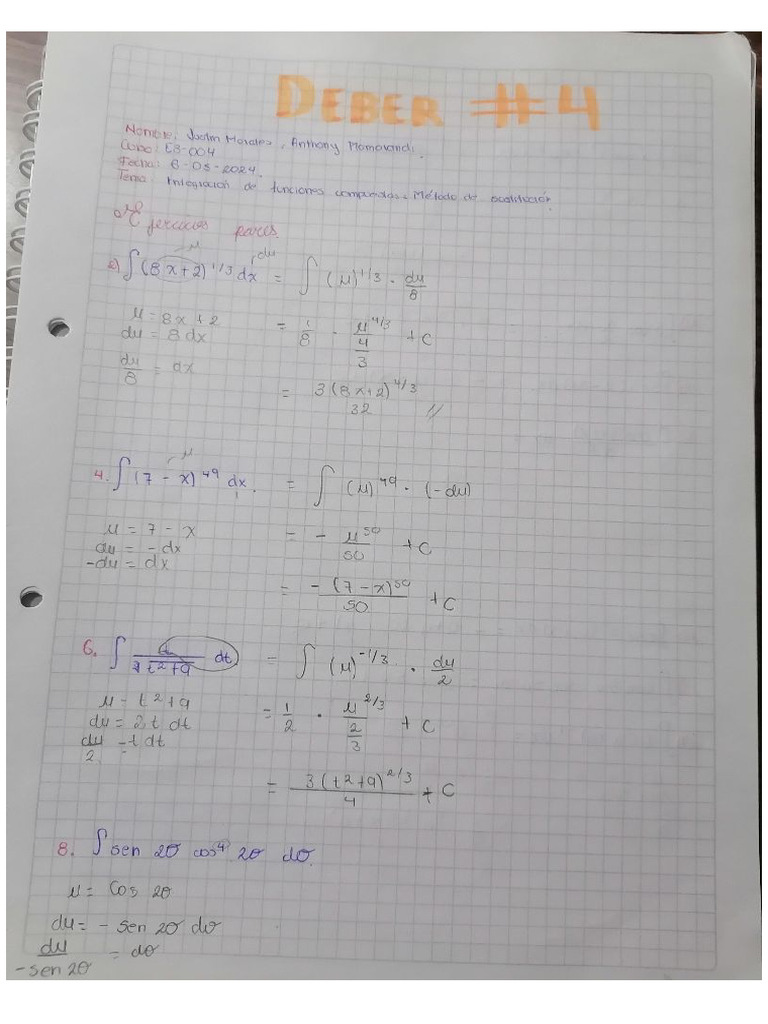 DEBER #4
Nombre: Joalin Morales, Anthony
Curso: EB-004
Fecha: 6-05-2024.
Tema: Integración de funciones compuestas: Método de sustitución
Ejercicios pares.
μ
du
2) ∫(8x+2)^1/3 dx = ∫(μ)^1/3 · du/8
μ = 8x+2
du = 8dx
= 1/8 · μ^4/3 / 4/3 + C
du/8 = dx
= 3(8x+2)^4/3 / 32 //
μ
4. ∫(7-x)^49 dx. = ∫(μ)^49 · (-du)
μ = 7-x
du = -dx
-du = dx
= - μ^50/50 + C
= -(7-x)^50 / 50 + C
6. ∫ / ∛t²+9 dt = ∫(μ)^-1/3 · du/2
μ = t²+9
du = 2t dt
du/2 = t dt
= 1/2 · μ^2/3 / 2/3 + C
= 3(t²+9)^2/3 / 4 + C
8. ∫sen 2θ cos⁴ 2θ dθ.
μ = Cos 2θ
du = - sen 2θ dθ
du / -sen 2θ = dθ